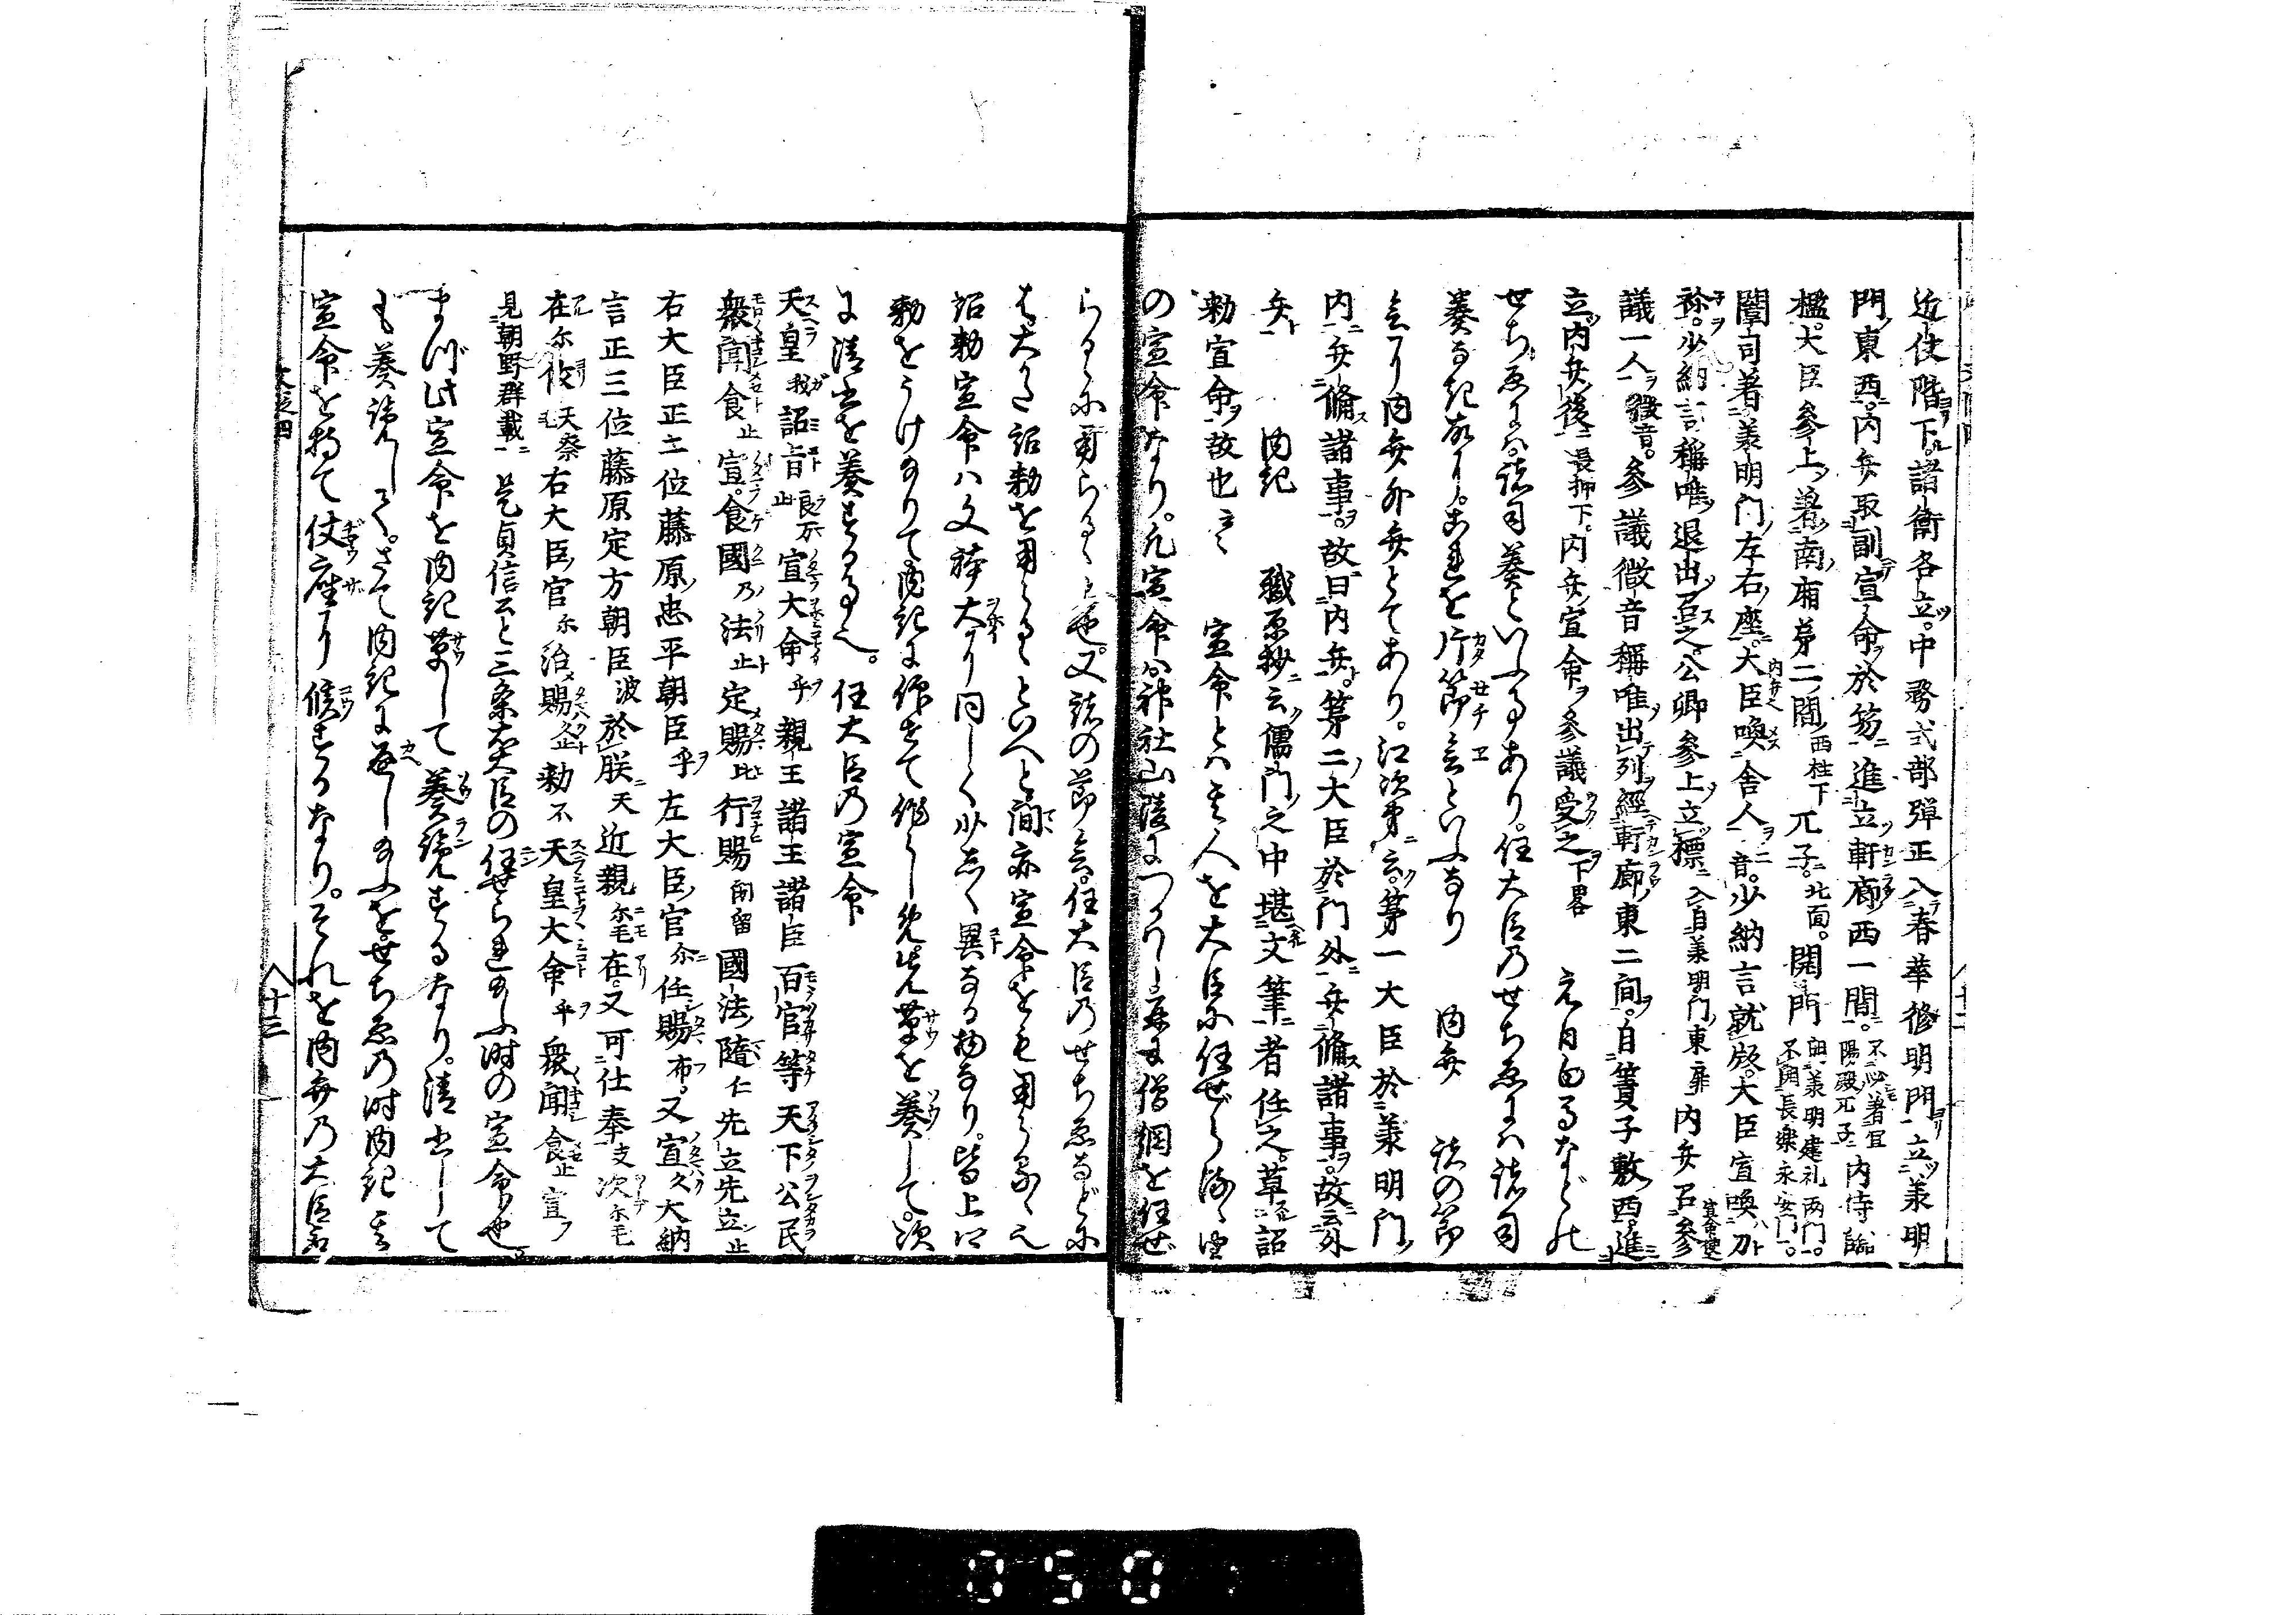 近仗階下諸衛各立。中務式部彈正入春華修明門立義明
門東西。内弁取副宣命於笏進立軒廊西一間。不必著宜陽殿兀子内侍臨
檻。大臣參上著南廂第二間西柱下兀子。北面。開門 義明建礼両門。不開長楽永安門。
闈司著義明門左右座。大臣喚舎人二音。少納言就版。大臣宣喚刀
祢。少納言稱唯退出召之。公卿參上立標入自義明門東扉内弁召參
議一人徴音。參議微音稱唯出列經軒廊東二間。自簀子敷西進
立内弁後長押下。内弁宣命ヲ參議受之下畧 元日白馬などの
せちゑには諸司奏といふ事あり。任大臣のせちゑには諸司
奏なき故なり。これを片節会といふなり 内弁 諸の節
会に内弁外弁とてあり。江次第云。第一大臣於義明門
内弁備諸事。故曰内弁。第二大臣於門外弁備諸事。故云外
弁 内記 職原抄云。儒門之中堪文筆者任之。草詔
勅宣命故也云々 宣命とは其人を大臣に任ぜらるゝ
の宣命なり。凡宣命は神社山陵につかはし又は僧綱を任ぜ
らるゝに用らるゝ也。又諸の節会。任大臣のせちゑなどに
は、大かた詔勅を用らるゝといへと間亦宣命をも用らるゝ也
詔勅宣命ハ文体大かた同しく少しく異なる物なり。皆上卿
勅をうけ給りて内記に作せて作らしめ。先草を奏して。次
に清書を奏する事也。任大臣の宣命
天皇我詔旨良万止宣大命乎親王諸王諸臣百官等天下公民
衆聞食止宣。食國乃法止定賜比行賜留國法隨仁先立先立止
右大臣正二位藤原忠平朝臣乎左大臣官尓任賜布。又宣久大納
言正三位藤原定方朝臣波於朕天近親尓毛在。又可仕奉支次尓毛
在尓依天祭右大臣官尓治賜止勅不天皇大命乎衆聞食止宣
見朝野群載 是貞信公と三条右大臣の任せられ給ふ時の宣命也
まづ此宣命を内記草して奏覧するなり。清書して
も奏覧して。さて内記に返し給ふを。せちゑの時内記其
宣命を持て仗座に候するなり。それを内弁の大臣召
文之四
八十三